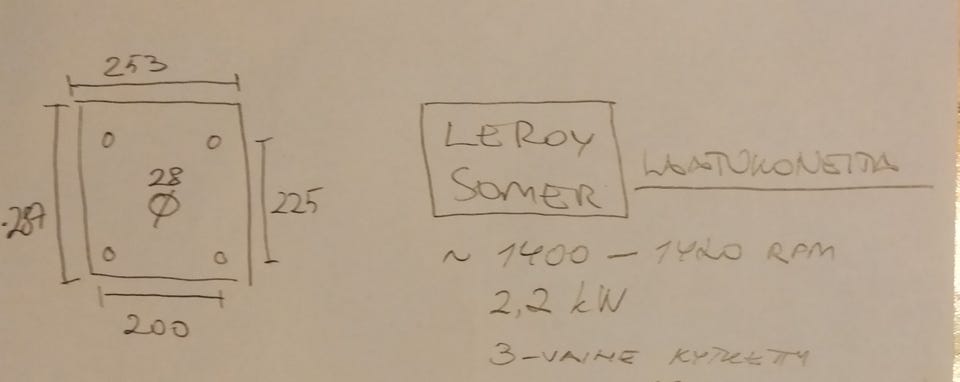 253
287
28
Ø
225
200
LEROY
SOMER
LAATUKONEITA
~ 1400 - 1420 RPM
2,2 kW
3-VAIHE KYTKETTY